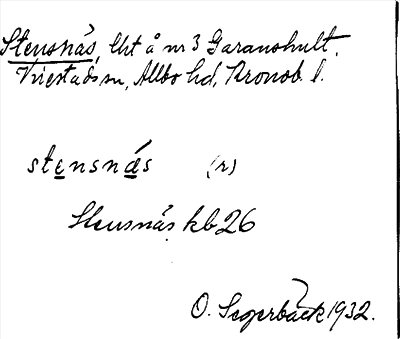 Stensnäs, lht å nr 3 Garanshult,
Virestads sn, Allbo hd, Kronob. l.
stensnäs (r)
Stensnäs kb 26
O. Segerbäck 1932.